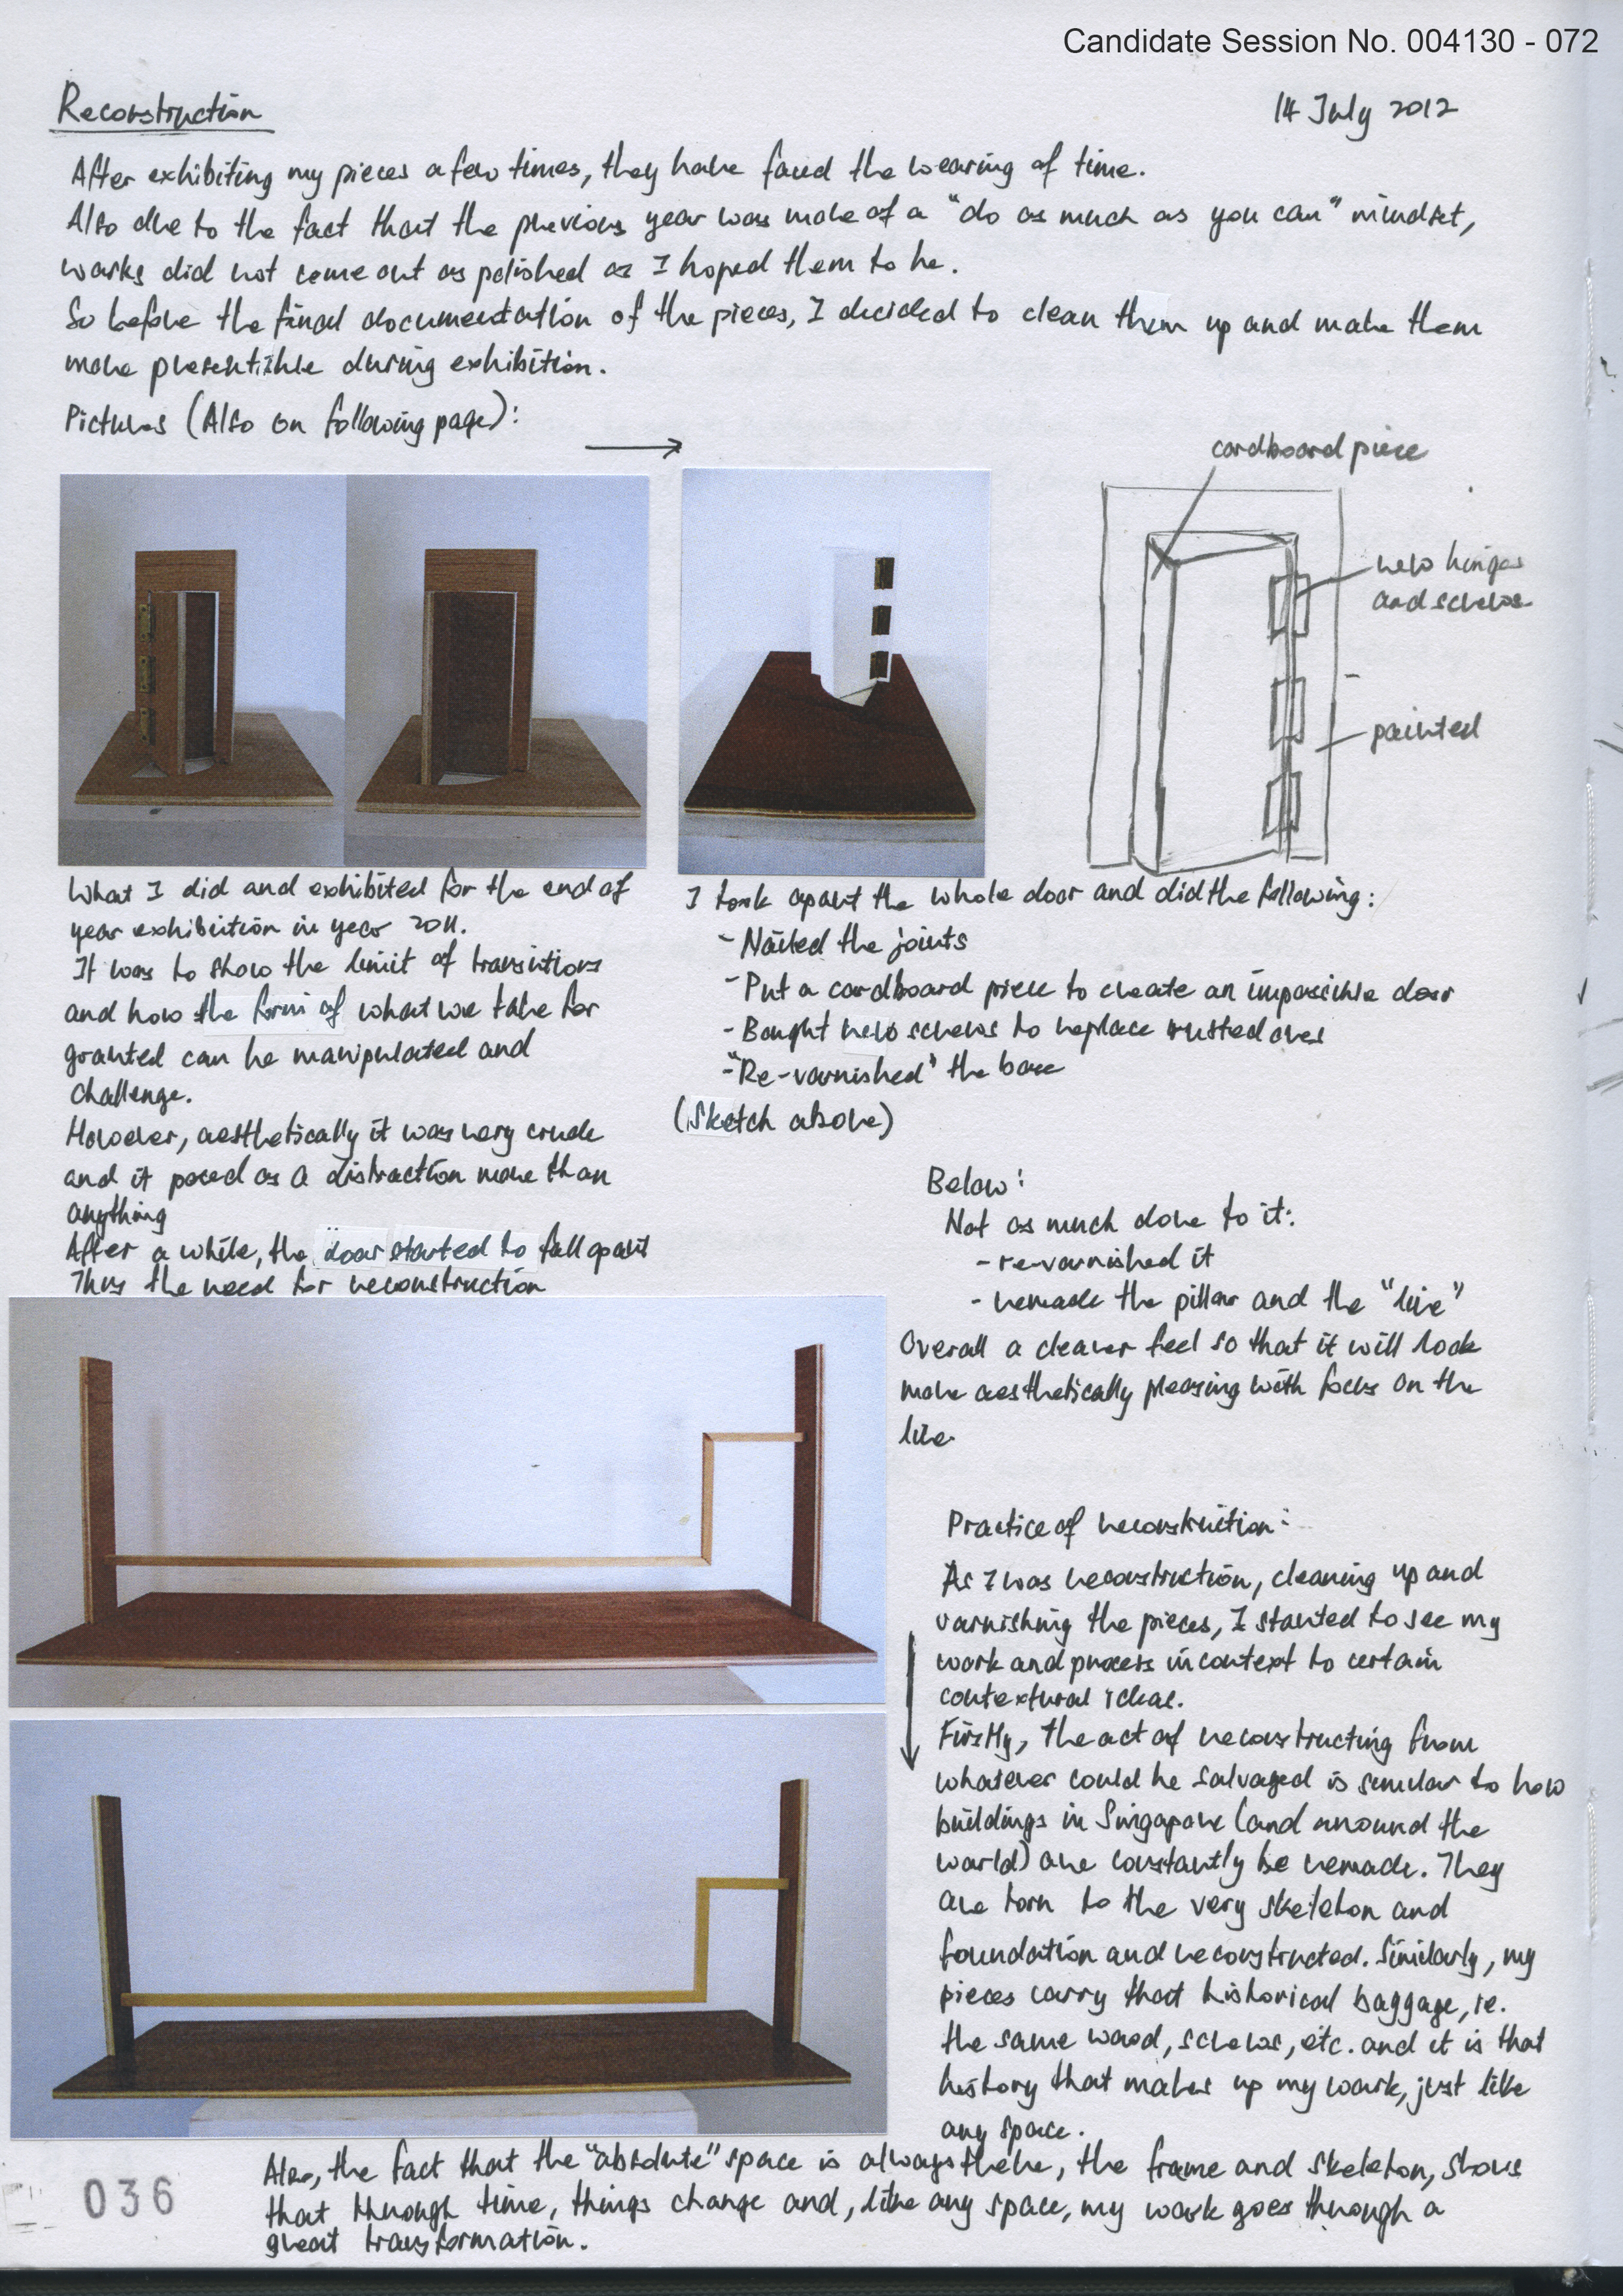 Candidate Session No. 004130 - 072
Reconstruction
14 July 2012
After exhibiting my pieces a few times, they have faced the wearing of time.
Also due to the fact that the previous year was more of a "do as much as you can" mindset,
works did not come out as polished as I hoped them to be.
So before the final documentation of the pieces, I decided to clean them up and make them
more presentible during exhibition.
Pictures (Also on following page):
cardboard piece
new hinges
and screws
painted
What I did and exhibited for the end of
year exhibition in year 2011.
It was to show the limit of transitions
and how the form of what we take for
granted can be manipulated and
challenge.
However, aesthetically it was very crude
and it posed as a distraction more than
anything
After a while, the door started to fall apart
Thus the need for reconstruction
I took apart the whole door and did the following:
- Nailed the joints
- Put a cardboard piece to create an impossible door
- Bought new screws to replace rusted ones
- "Re-varnished" the base
(Sketch above)
Below:
Not as much done to it:
- re-varnished it
- remade the pillar and the "line"
Overall a cleaner feel so that it will look
more aesthetically pleasing with focus on the
line.
Practice of reconstruction:
As I was reconstruction, cleaning up and
varnishing the pieces, I started to see my
work and process in context to certain
contextural ideas.
Firstly, the act of reconstructing from
whatever could be salvaged is similar to how
buildings in Singapore (and around the
world) are constantly be remade. They
are torn to the very skeleton and
foundation and reconstructed. Similarly, my
pieces carry that historical baggage, ie.
the same wood, screws, etc. and it is that
history that makes up my work, just like
any space.
Also, the fact that the "absolute" space is always there, the frame and skeleton, shows
that through time, things change and, like any space, my work goes through a
great transformation.
036